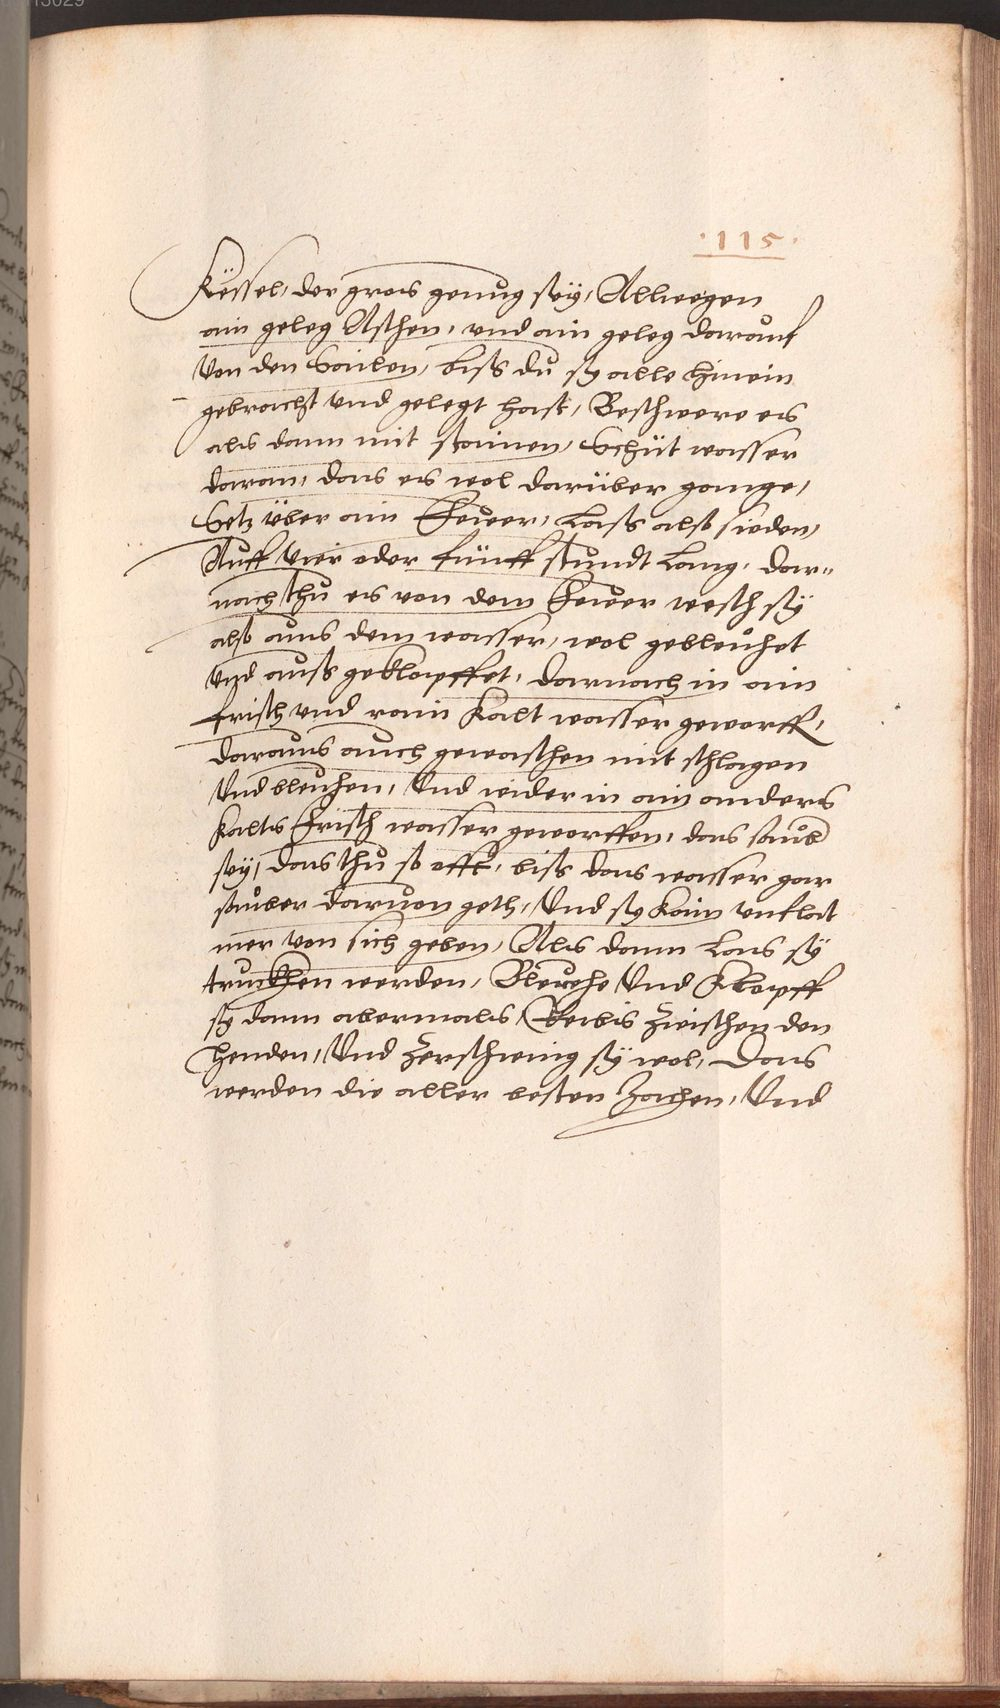 ·115·
Kessel, der gros genug sey, Allwegen
ain geleg Aschen, und ain geleg darauf
Von den Sailen, biß du sy alle hinein
gebracht und gelegt hast, Beschwere es
als dann mit stainen, Schüt wasser
daran, das es wol darüber gange,
Setz über ain Feuer, Lass also sieden,
Auff vier oder fünff stundt lang, dar„
nach thu es von dem Feuer wesch sÿ
also aus dem wasser, wol gebleuhet
und auß geklopffet, darnach in ain
frisch und rain kalt wasser geworff,
daraus auch gewaschen mit schlagen
Und bleuhen, Und wider in ain anders
kalts Frisch wasser geworffen, das saub
sey, das thu so offt, biß das wasser gar
sauber darvon geth, Und sy kain unflat
mer von sich geben, Als dann Las sÿ
truckhen werden, Bleuhe Und Klopff
sy dann abermals, Reibs zwischen den
henden, Und zerschwing sÿ wol, Das
werden die aller besten Zachen, Und